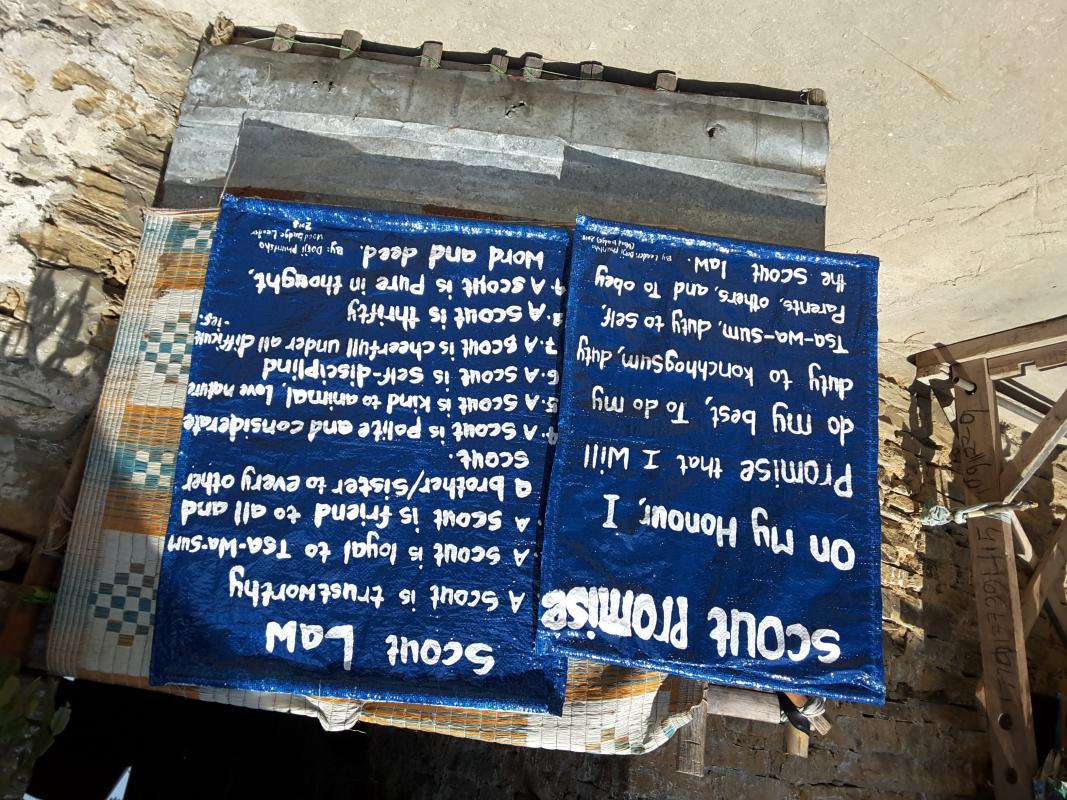 Scout Promise
On my Honour, I
Promise that I Will
do my best, To do my
duty to Konchhogsum, duty
Tsa-wa-sum, duty to self,
Parents, others, and To obey
the Scout law.
By Leader: Dorji Phuntsho
Scout Law
A Scout is trustworthy
A Scout is loyal to Tsa-Wa-Sum
A Scout is friend to all and
a brother/sister to every other
Scout.
4. A Scout is Polite and considerate
5. A Scout is kind to animal, Love nature
6. A Scout is Self-disciplind
7. A Scout is cheerfull under all difficult-
ies.
8. A Scout is thrifty
9. A Scout is Pure in thought,
Word and deed.
By: Dorji Phuntsho
Wood badge Leader